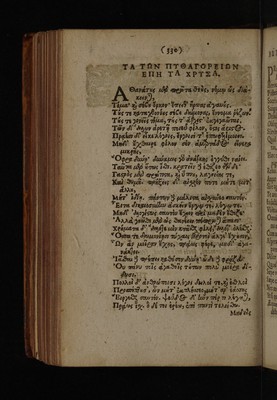 (330)
ΤΑ ΤΩΝ ΠΥΘΑΓΟΡΕΙΩΝ
ΕΠΗ ΤΑ ΧΡΥΣΑ.
Ἀθανάτους μὲν πρῶτα θεοὺς, νόμῳ ὡς διά-
κεινται,
Τίμα, καὶ σέβου ὅρκον. ἔπειθ' ἥρωας ἀγαυούς.
Τούς τε καταχθονίους σέβε δαίμονας, ἔννομα ῥέζων.
Τούς τε γονεῖς τίμα, τούς τ' ἄγχιστ' ἐκγεγαῶτας.
Τῶν δ' ἄλλων ἀρετῇ ποιεῦ φίλον, ὅστις ἄριστος.
Πραέσι δ' εἶκε λόγοις, ἔργοισί τ' ἐπωφελίμοισι.
Μηδ' ἔχθαιρε φίλον σὸν ἁμαρτάδος εἵνεκα
μικρῆς,
Ὄφρα δύνῃ· δύναμις γὰρ ἀνάγκης ἐγγύθι ναίει.
Ταῦτα μὲν οὕτως ἴσθι. κρατεῖν δ' εἰθίζεο τῶνδε·
Γαστρὸς μὲν πρώτιστα, καὶ ὕπνου, λαγνείης τε,
Καὶ θυμοῦ. πρήξεις δ' αἰσχρόν ποτε μήτε μετ'
ἄλλου,
Μήτ' ἰδίῃ. πάντων δὲ μάλιστα αἰσχύνεο σαυτόν.
Εἶτα δικαιοσύνην ἀσκεῖν ἔργῳ τε, λόγῳ τε.
Μηδ' ἀλογίστως σαυτὸν ἔχειν περὶ μηδὲν ἔθιζε·
Ἀλλὰ γνῶθι μὲν ὡς θανέειν πέπρωται ἅπασι.
Χρήματα δ' ἄλλοτε μὲν κτᾶσθαι φιλεῖ, ἄλλοτ' ὀλέσθαι.
Ὅσσα τε δαιμονίῃσι τύχαις βροτοὶ ἄλγε' ἔχουσιν,
Ὧν ἂν μοῖραν ἔχῃς, πρᾴως φέρε, μηδ' ἀγα-
νάκτει·
Ἰᾶσθαι δὲ πρέπει καθόσον δύνῃ. ὧδε δὲ φράζευ·
Οὐ πάνυ τοῖς ἀγαθοῖς τούτων πολὺ μοῖρα δί-
δωσι.
Πολλοὶ δ' ἀνθρώποισι λόγοι δειλοί τε, καὶ ἐσθλοὶ
Προσπίπτουσ', ὧν μήτ' ἐκπλήσσεο, μήτ' ἄρ' ἐάσῃς
Εἴργεσθαι σαυτόν. ψεῦδος δ' ἤν πέρ τι λέγηται,
Πράως εἶχ'. ὃ δέ τοι ἐρέω, ἐπὶ παντὶ τελείσθω.
Μηδεὶς